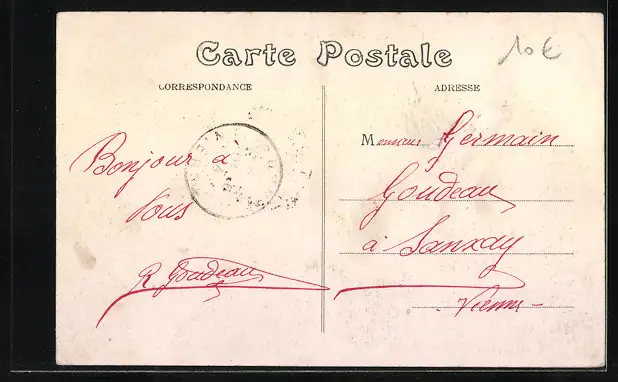 Carte Postale
10 €
CORRESPONDANCE
ADRESSE
Bonjour à
tous
R. Goudeau
Monsieur Germain
Goudeau
à Sanxay
- Vienne -